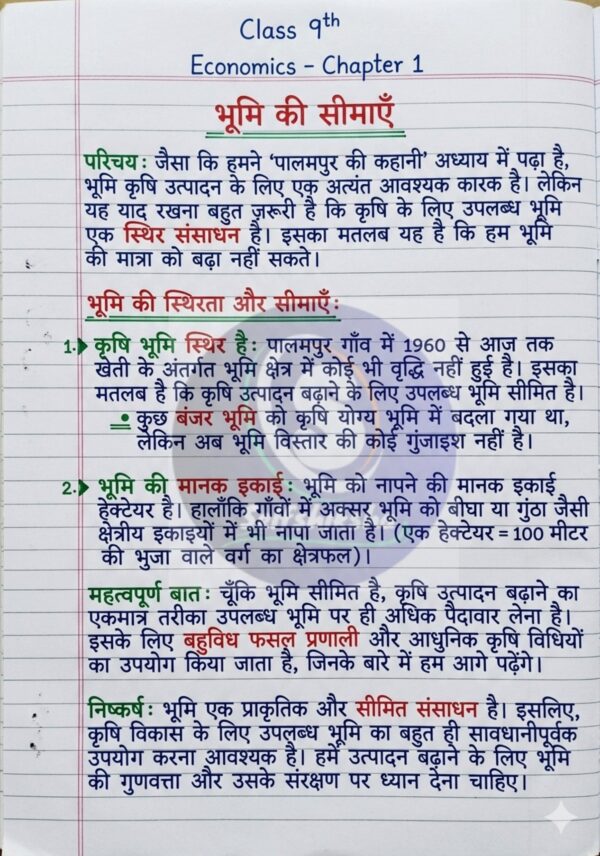 Class 9th
Economics – Chapter 1
भूमि की सीमाएँ
परिचय: जैसा कि हमने ‘पालमपुर की कहानी’ अध्याय में पढ़ा है,
भूमि कृषि उत्पादन के लिए एक अत्यंत आवश्यक कारक है। लेकिन
यह याद रखना बहुत ज़रूरी है कि कृषि के लिए उपलब्ध भूमि
एक स्थिर संसाधन है। इसका मतलब यह है कि हम भूमि
की मात्रा को बढ़ा नहीं सकते।
भूमि की स्थिरता और सीमाएँ:
1. कृषि भूमि स्थिर है: पालमपुर गाँव में 1960 से आज तक
खेती के अंतर्गत भूमि क्षेत्र में कोई भी वृद्धि नहीं हुई है। इसका
मतलब है कि कृषि उत्पादन बढ़ाने के लिए उपलब्ध भूमि सीमित है।
• कुछ बंजर भूमि को कृषि योग्य भूमि में बदला गया था,
लेकिन अब भूमि विस्तार की कोई गुंजाइश नहीं है।
2. भूमि की मानक इकाई: भूमि को नापने की मानक इकाई
हेक्टेयर है। हालाँकि गाँवों में अक्सर भूमि को बीघा या गुंठा जैसी
क्षेत्रीय इकाइयों में भी नापा जाता है। (एक हेक्टेयर = 100 मीटर
की भुजा वाले वर्ग का क्षेत्रफल)।
महत्वपूर्ण बात: चूँकि भूमि सीमित है, कृषि उत्पादन बढ़ाने का
एकमात्र तरीका उपलब्ध भूमि पर ही अधिक पैदावार लेना है।
इसके लिए बहुविध फसल प्रणाली और आधुनिक कृषि विधियों
का उपयोग किया जाता है, जिनके बारे में हम आगे पढ़ेंगे।
निष्कर्ष: भूमि एक प्राकृतिक और सीमित संसाधन है। इसलिए,
कृषि विकास के लिए उपलब्ध भूमि का बहुत ही सावधानीपूर्वक
उपयोग करना आवश्यक है। हमें उत्पादन बढ़ाने के लिए भूमि
की गुणवत्ता और उसके संरक्षण पर ध्यान देना चाहिए।